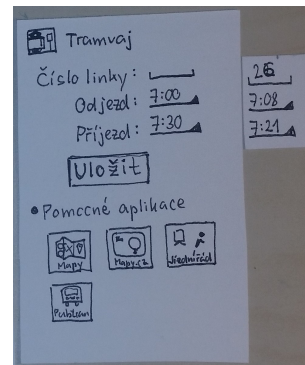 Tramvaj
Číslo linky:
Odjezd: 7:00
Příjezd: 7:30
26
7:08
7:21
Uložit
• Pomocné aplikace
Mapy
Mapy.cz
Jízdní řád
Pubtran